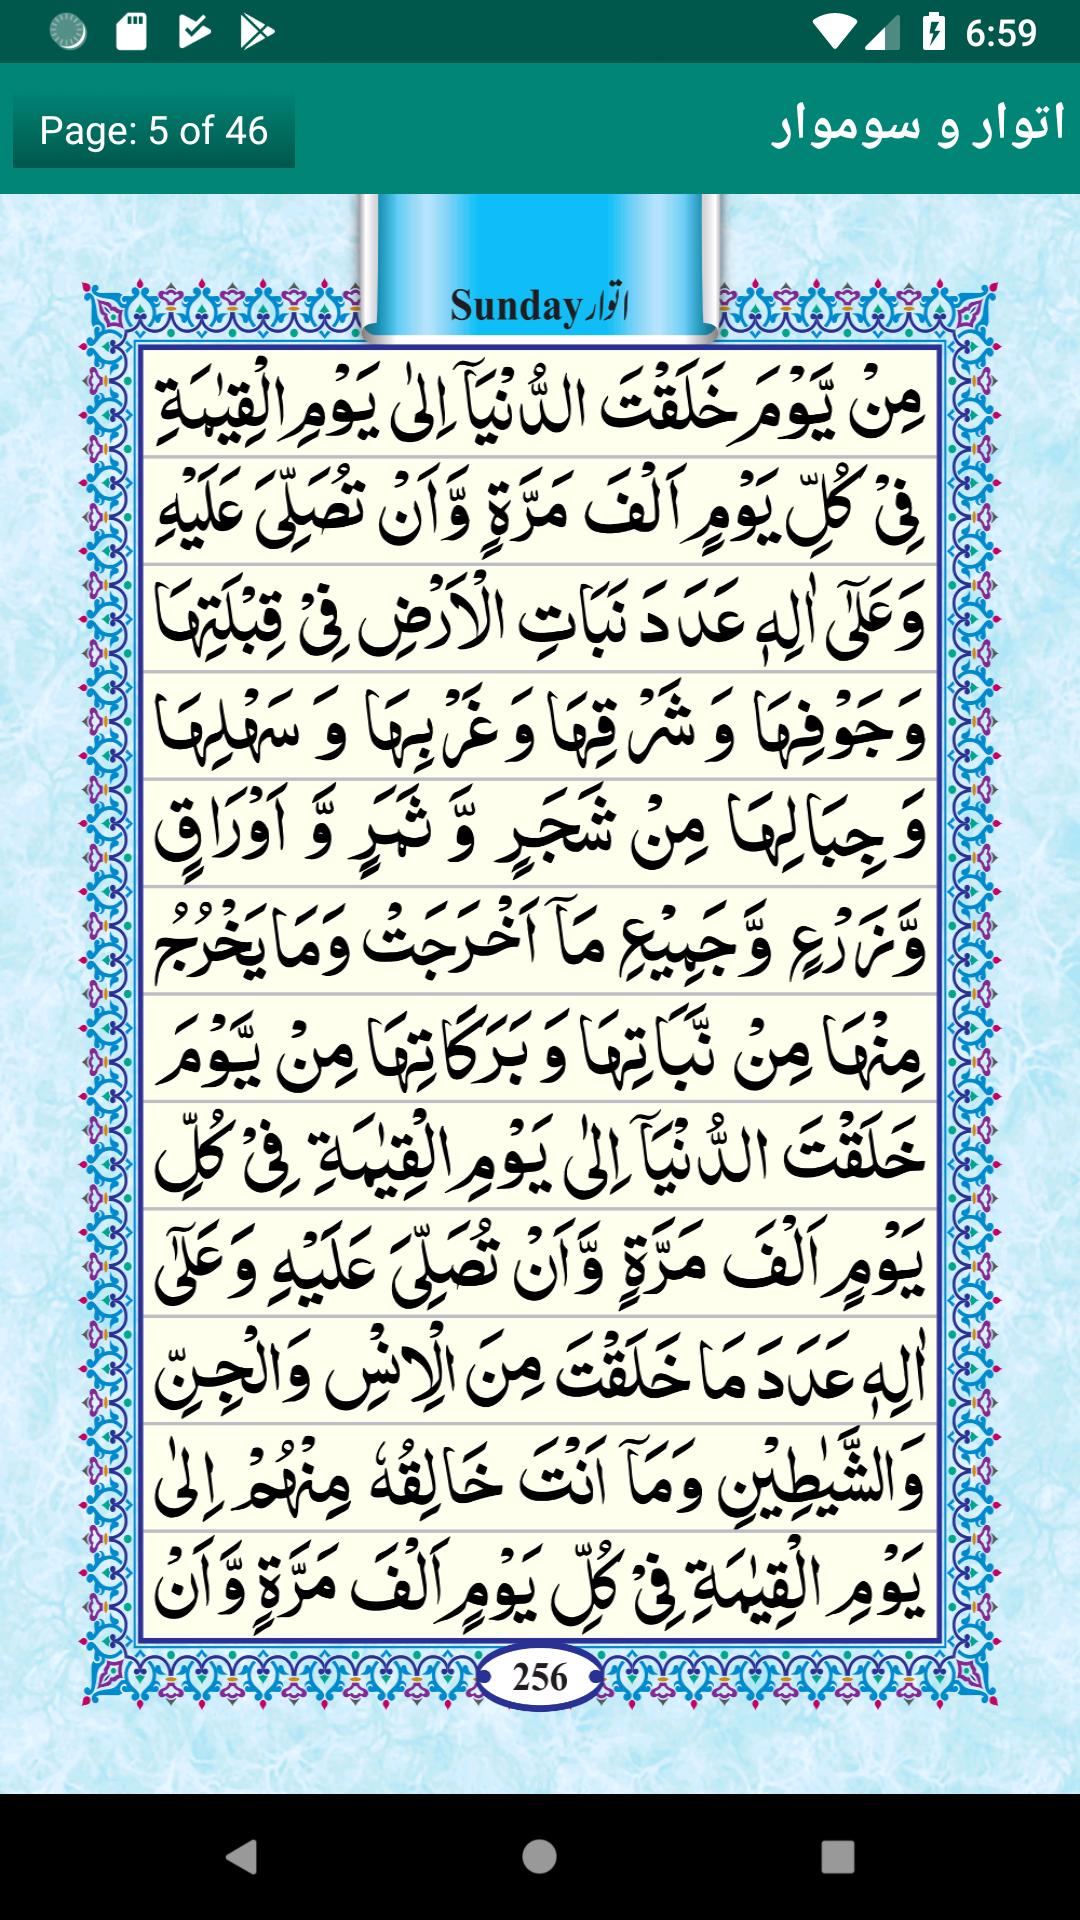 6:59
Page: 5 of 46
اتوار و سوموار
Sunday اتوار
مِنْ يَّوْمَ خَلَقْتَ الدُّنْيَآ اِلٰى يَوْمِ الْقِيٰمَةِ
فِىْ كُلِّ يَوْمٍ اَلْفَ مَرَّةٍ وَّاَنْ تُصَلِّىَ عَلَيْهِ
وَعَلٰٓى اٰلِهٖ عَدَدَ نَبَاتِ الْاَرْضِ فِىْ قِبْلَتِهَا
وَجَوْفِهَا وَ شَرْقِهَا وَ غَرْبِهَا وَ سَهْلِهَا
وَ جِبَالِهَا مِنْ شَجَرٍ وَّ ثَمَرٍ وَّ اَوْرَاقٍ
وَّزَرْعٍ وَّجَمِيْعِ مَآ اَخْرَجَتْ وَمَا يَخْرُجُ
مِنْهَا مِنْ نَّبَاتِهَا وَ بَرَكَاتِهَا مِنْ يَّوْمَ
خَلَقْتَ الدُّنْيَآ اِلٰى يَوْمِ الْقِيٰمَةِ فِىْ كُلِّ
يَوْمٍ اَلْفَ مَرَّةٍ وَّاَنْ تُصَلِّىَ عَلَيْهِ وَعَلٰٓى
اٰلِهٖ عَدَدَ مَا خَلَقْتَ مِنَ الْاِنْسِ وَالْجِنِّ
وَالشَّيٰطِيْنِ وَمَآ اَنْتَ خَالِقُهٗ مِنْهُمْ اِلٰى
يَوْمِ الْقِيٰمَةِ فِىْ كُلِّ يَوْمٍ اَلْفَ مَرَّةٍ وَّاَنْ
256